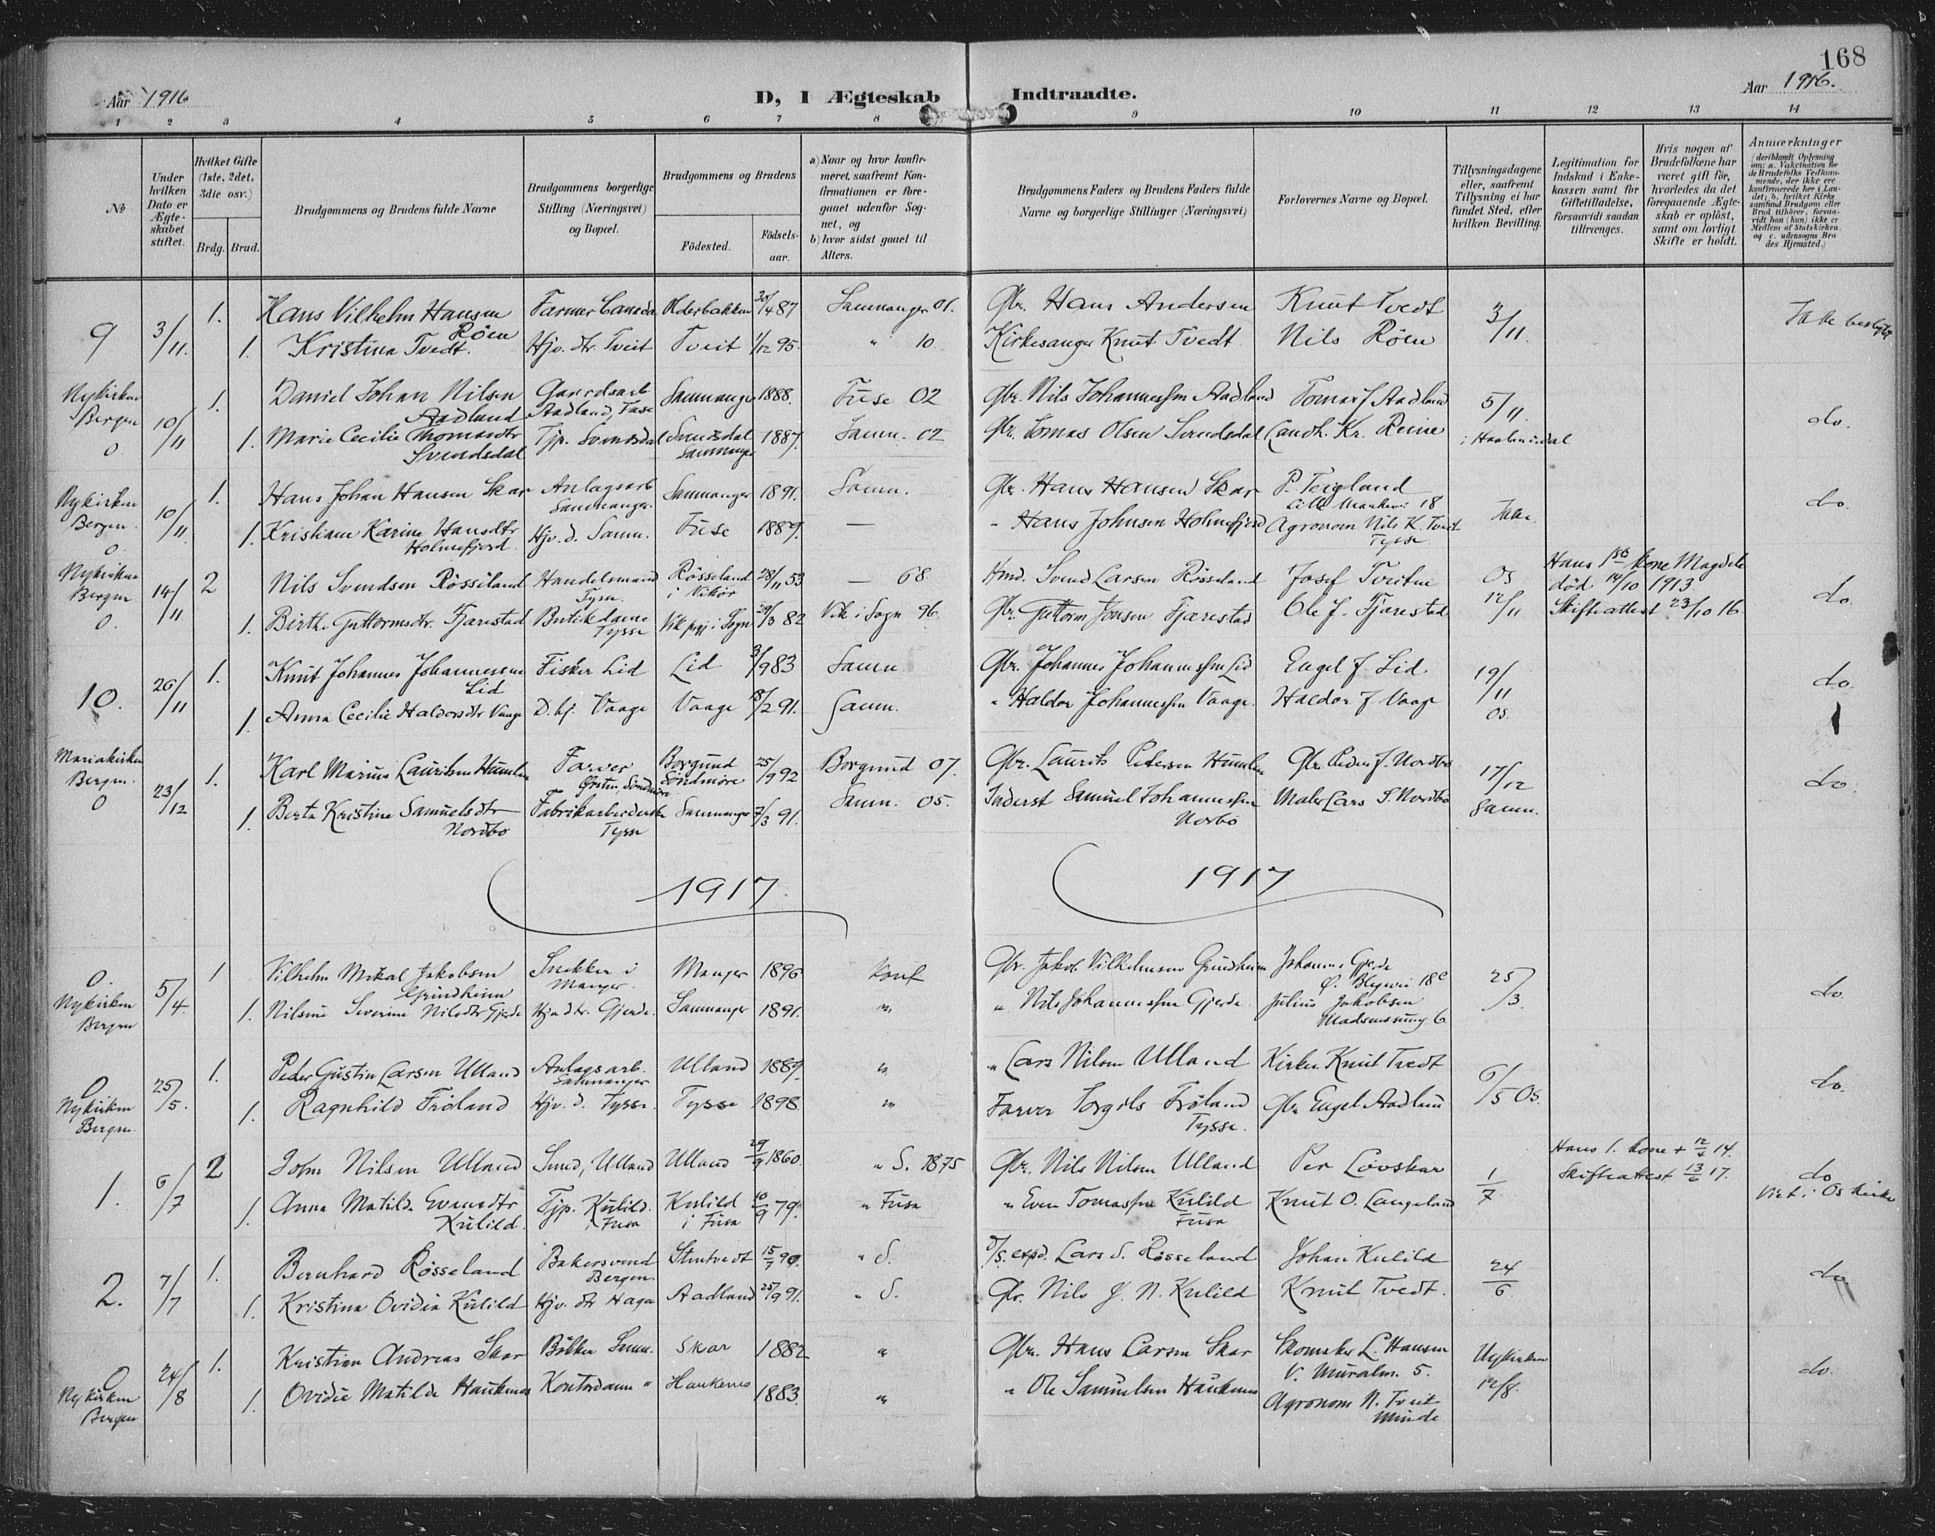 168
Aar 1916
D, I Ægteskab Indtraadte.
Aar 1916.
1 2 3 4 5 6 7 8 9 10 11 12 13 14
No
Under hvilken Dato er Ægteskabet stiftet.
Hvilket Gifte (1ste, 2det, 3die osv.)
Brdg. Brud.
Brudgommens og Brudens fulde Navne
Brudgommens borgerlige Stilling (Næringsvei) og Bopæl.
Brudgommens og Brudens
Fødested.
Fødselsaar.
a) Naar og hvor konfirmeret, saafremt Konfirmationen er foregaaet udenfor Sognet, og
b) hvor sidst gaaet til Alters.
Brudgommens Faders og Brudens Faders fulde Navne og borgerlige Stillinger (Næringsvei)
Forlovernes Navne og Bopæl.
Tillysningsdagene eller, saafremt Tillysning ei har fundet Sted, efter hvilken Bevilling.
Legitimation for Indskud i Enkekassen samt for Giftetilladelse, forsaavidt saadan tiltrænges.
Hvis nogen af Brudefolkene har været gift før, hvorledes da det foregaaende Ægteskab er opløst, samt om lovligt Skifte er holdt.
Anmærkninger
9 3/11. 1. Hans Vilhelm Hansen Røen Farmer Canada Olderbakken 30/4 87 Samnanger 01. Gbr. Hans Andersen Knut Tvedt 3/11 Ikke beslegtet
1. Kristina Tvedt. Hjv. dtr. Tveit Tveit 1/12 95. " 10 Kirkesanger Knut Tvedt. Nils Røen
Nykirken Bergen 0 10/11 1. Daniel Johan Nilsen Aadland Gaardsarb Aadland, Fuse Samnanger 1888. Fuse 02 Gbr. Nils Johannessen Aadland Tomas J Aadland 5/11 do.
1. Marie Cecilie Thomasdtr Svendsdal Tjp. Svendsdal Svendsdal Samnanger 1887. Samn. 02 Gbr. Tomas Olsen Svendsdal Candt. Kr. Reine
Nykirken Bergen 0 10/11. 1. Hans Johan Hansen Skar Anlagsarb Samnanger. Samnanger 1891. Samn. Gbr. Hans Hansen Skar P. Teigland Lille Markevei 18 Ikke. do.
1. Kristiane Karine Hansdtr Holmefjord. Hjv. d. Samn. Fuse 1889. — " Hans Johnsen Holmefjord Agronom Nils K. Tveit Tysse
Nykirken Bergen 0. 14/11 2 Nils Svendsen Røsseland Handelsmand Tysse. Røsseland i Vikør 28/11 53 — 68 Hmd. Svend Larsen Røsseland Josef Tveiten Os 12/11 Hans 1ste kone Magdele død 14/10 1913 do.
1. Birthe Guttormsdtr. Fjærestad Butikdame Tysse Vik pgj i Sogn 29/3 82 Vik i Sogn 96. Gbr. Guttorm Jonsen Fjærestad Ole J. Fjærestad Skifteattest 23/10 16
10. 26/11 1. Knut Johannes Johannessen Lid Fisker Lid Lid 3/9 83 Samn. Gbr. Johannes Johannessen Lid Engel J. Lid. 19/11 Os. do.
1. Anna Cecilie Haldorsdtr Vaage D. hj. Vaage Vaage 18/2 91. Samn. " Haldor Johannessen Vaage. Haldor J Vaage
Mariakirken Bergen. 0 23/12 1. Karl Marius Lauritsen Humlen Farver Ørsten, Søndmøre Borgund Søndmøre 25/9 92 Borgund 07. Gbr. Laurits Petersen Humlen Gbr. Peder J. Nordbø 17/12 Samn. do.
1. Berta Kristine Samuelsdtr Nordbø Fabrikarbeiderske Tysse Samnanger 7/3 91. Samn. 05. Inderst Samuel Johannessen Norbø Maler Lars S. Nordbø
1917. 1917
0. Nykirken Bergen 5/4. 1 Vilhelm Mikal Jakobsen Grindheim Snekker i Manger. Manger 1896 Konf Gbr. Jakob Vilhelmsen Grindheim Johannes Gjerde Ø. Blegvei 18e 25/3. do.
1. Nilsine Severine Nilsdtr Gjerde Hjv dtr. Gjerde. Samnanger 1891. " " Nils Johannessen Gjerde. Julius Jakobsen 6
0 Nykirken Bergen. 25/5. 1. Peder Gustin Larsen Ulland Anlagsarb. Samnanger Ulland 1889. " " Lars Nilsen Ulland Kirkes. Knut Tvedt 6/5 Os. do.
1. Ragnhild Frøland Hjv. d. Tysse. Tysse 1898. " Farver Torgils Frøland Tysse. Gbr Engel Aadland
1. 6/7 2 John Nilsen Ulland Smed, Ulland Ulland 29/9 1860. " S. 1875 Gbr. Nils Nilsen Ulland Per Løvskar 1/7 Hans 1. kone + 12/4 14. do
1. Anna Matilde Evensdtr Kulild. Tjp. Kulild. Fusa Kulild i Fusa 10/9 79. " Fusa " Even Tomassen Kulild Fusa Knut O. Langeland Skifteattest 13/6 17. Viet i Os kirke
2. 7/7 1. Bernhard Røsseland Bakersvend Bergen. Stentvedt 15/7 90. " S. D/S. exped. Lars S. Røsseland Johan Kulild 24/6 do
1. Kristina Ovidia Kulild Hjv. dtr Haga Aadland 25/9 91. " S. Gbr. Nils J. N. Kulild Knut Tvedt.
0 Nykirken Bergen 24/8 1. Kristian Andreas Skar Bøkker Samn. Skar 1882 " Gbr. Hans Larsen Skar Skomaker L. Hansen V. Muralm. 5. Nykirken 12/8. do.
1. Ovidie Matilde Haukenes Kontordame " Haukenes 1883. " " Ole Samuelsen Haukenes Agronom N. Tveit Minde